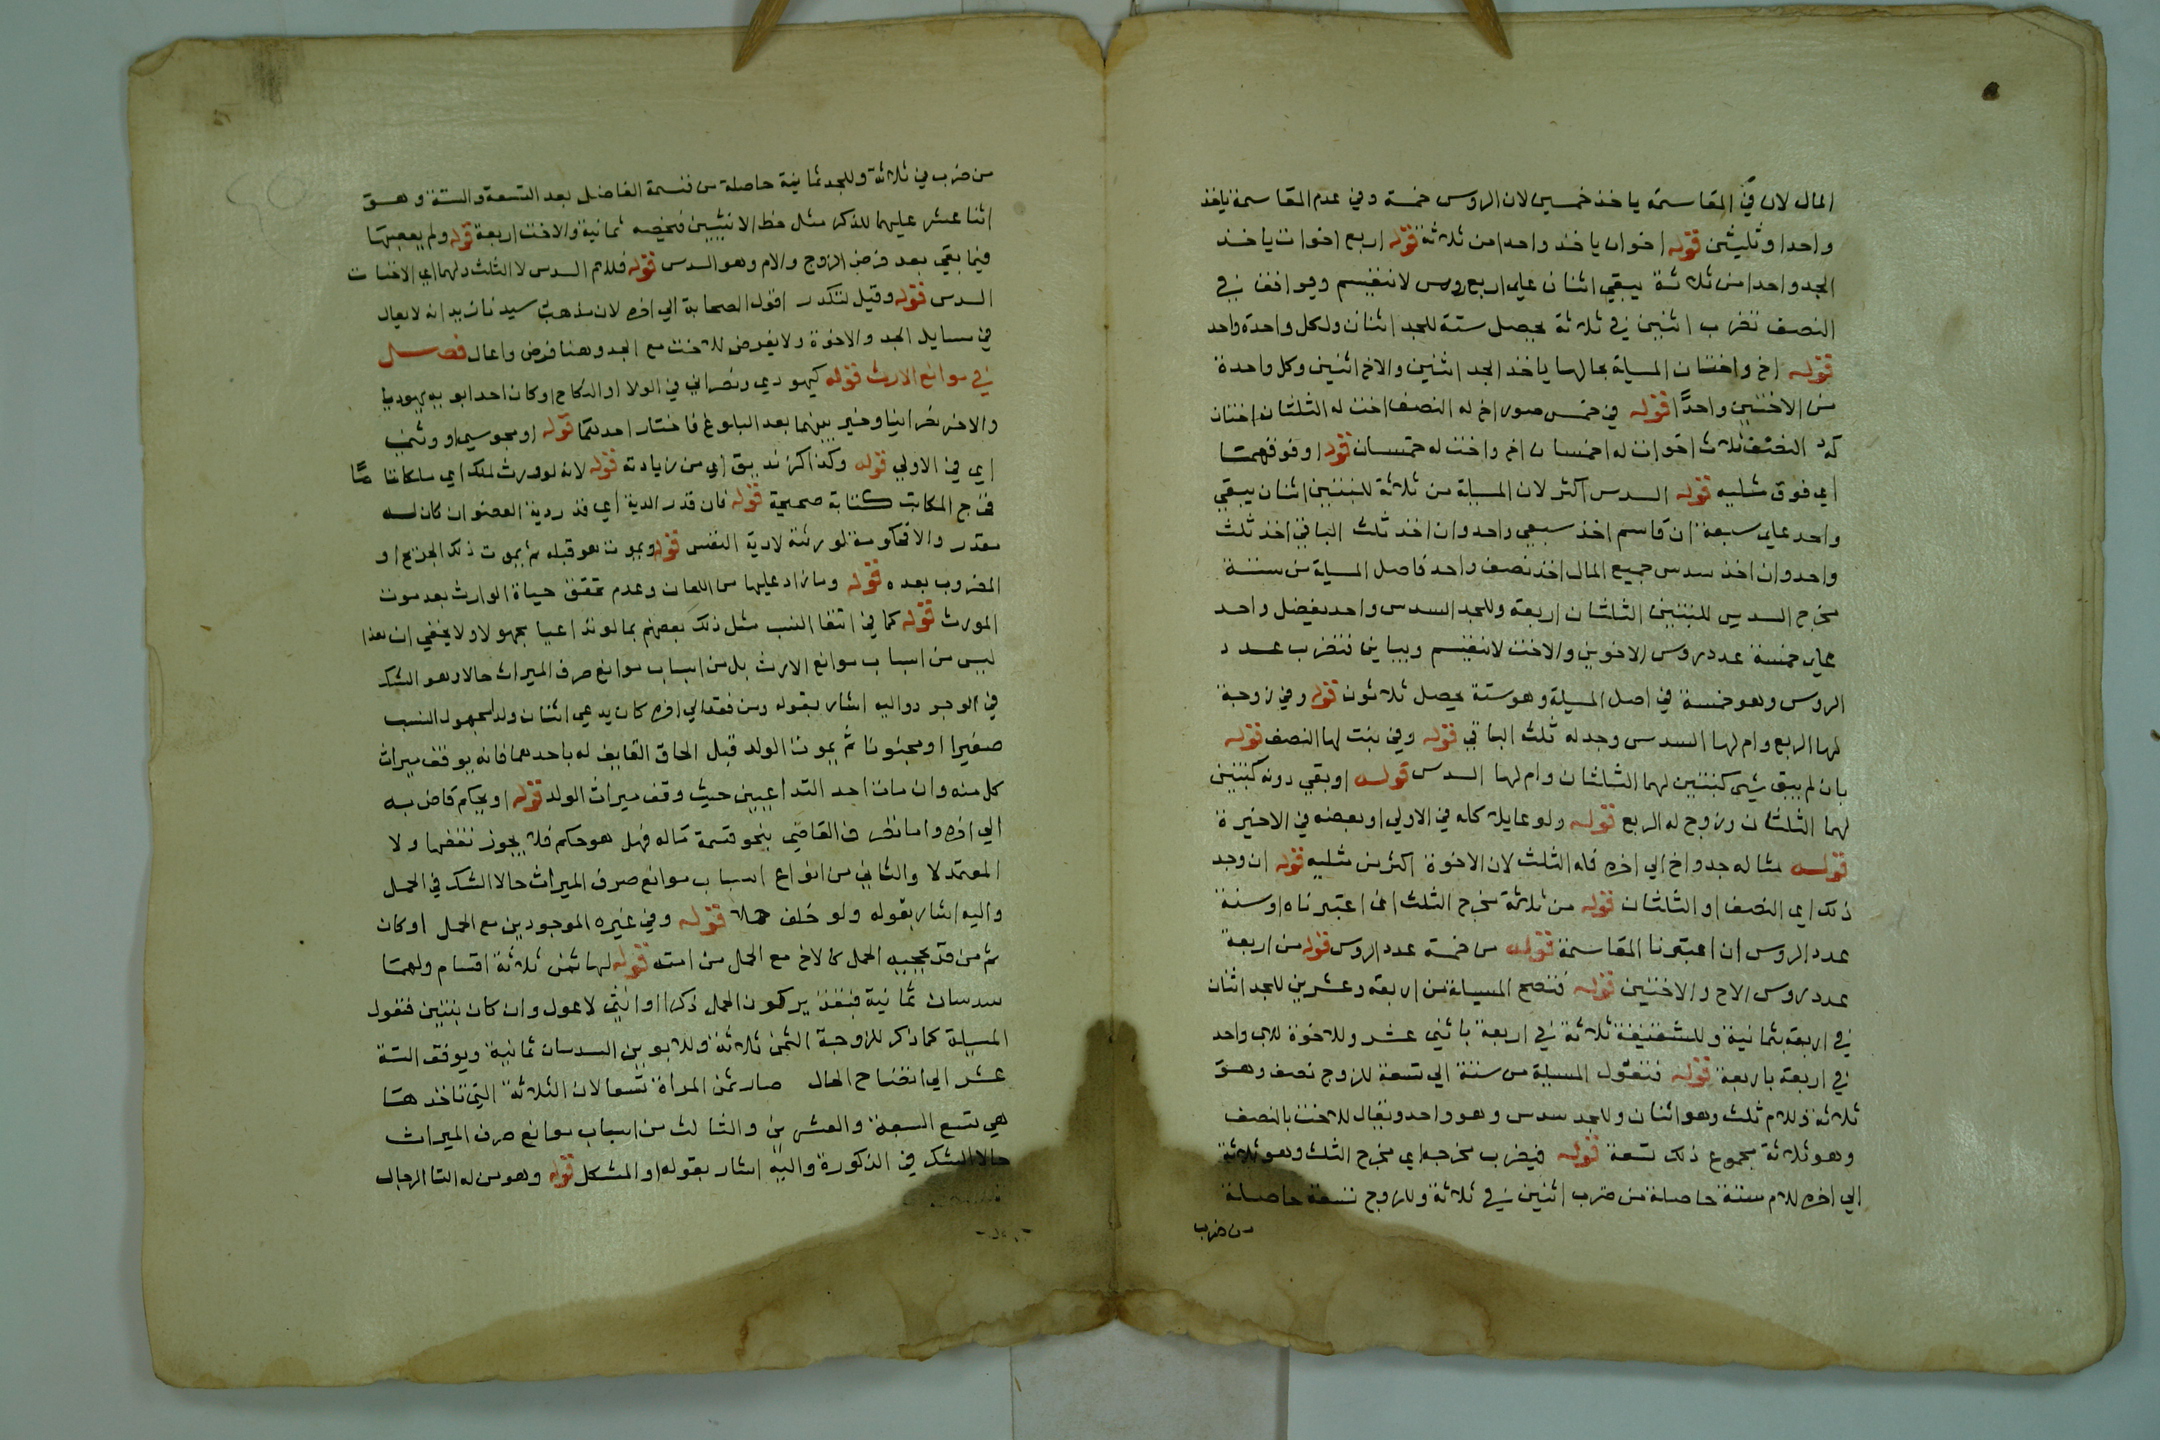 المال لان في المقاسمة ياخذ خمسين لان الروس خمسة وفي عدم المقاسمة ياخذ
واحدا وثلثين قوله اخوان ياخذ واحدا من ثلاثة قوله اربع اخوات ياخذ
الجد واحدا من ثلاثة يبقي اثنان علي اربع روس لا تنقسم ويوافق في
النصف تضرب اثنين في ثلاثة يحصل ستة للجد اثنان ولكل واحدة واحد
قوله اخ واختان المسيلة بحالها ياخذ الجد اثنين والاخ اثنين وكل واحدة
من الاختين واحدًا قوله في خمس صور اخ له النصف اخت له الثلثان اختان
له النصف ثلاث اخوات له خمسان اخ واخت له خمسان قوله او فوقهما
اي فوق مثليه قوله السدس اكثر لان المسيلة من ثلاثة للبنتين اثنان يبقي
واحد علي سبعة ان قاسم اخذ سبعي واحد وان اخذ ثلث الباقي اخذ ثلث
واحد وان اخذ سدس جميع المال اخذ نصف واحد فاصل المسيلة من ستة
مخرج السدس للبنتين الثلثان اربعة وللجد السدس واحد يفضل واحد
علي خمسة عدد روس الاخوين والاخت لا تنقسم ويباين فتضرب عدد
الروس وهو خمسة في اصل المسيلة وهو ستة يحصل ثلاثون قوله وفي زوجة
لها الربع وام لها السدس وجد له ثلث الباقي قوله وفي بنت لها النصف قوله
بان لم يبق شي كبنتين لهما الثلثان وام لها السدس قوله او بقي دونه كبنتين
لهما الثلثان وزوج له الربع قوله ولو عايلا كله في الاولي او بعضه في الاخيرة
قوله مثاله جد واخ الي اخره فله الثلث لان الاخوة اكثر من مثليه قوله ان وجد
ذلك اي النصف او الثلثان قوله من ثلاثة مخرج الثلث ان اعتبرناه او ستة
عدد الروس ان اعتبرنا المقاسمة قوله من خمسة عدد الروس قوله من اربعة
عدد روس الاخ والاختين قوله فتصح المسيلة من اربعة وعشرين للجد اثنان
في اربعة بثمانية وللشقيقة ثلاثة في اربعة باثني عشر وللاخوة للاب واحد
في اربعة باربعة قوله فنقول المسيلة من ستة الي تسعة للزوج نصف وهو
ثلاثة وللام ثلث وهو اثنان وللجد سدس وهو واحد ويعال للاخت بالنصف
وهو ثلاثة مجموع ذلك تسعة قوله فيضرب مخرجه اي مخرج الثلث وهو ثلاثة
الي اخره للام ستة حاصلة من ضرب اثنين في ثلاثة وللزوج تسعة حاصلة
من ضرب
من ضرب في ثلاثة وللجد ثمانية حاصلة من قسمة الفاضل بعد التسعة والستة وهو
اثنا عشر عليهما للذكر مثل حظ الانثيين فيخصه ثمانية والاخت اربعة قوله ولم يعصبها
فيما بقي بعد فرض الزوج والام وهو السدس قوله فللام السدس لا الثلث ولهما اي الاختان
السدس قوله وقيل لتكدر اقول الصحابة الي اخره لان مذهب سيدنا زيد انه لا يعال
في مسايل الجد والاخوة ولا يفرض للاخت مع الجد وهنا فرض واعال فصل
في موانع الارث قوله كيهودي ونصراني في الولا او النكاح او كان احد ابويه يهوديا
والاخر نصرانيا وخير بينهما بعد البلوغ فاختار احدهما قوله او مجوسي او وثني
اي في الاولي قوله وكذا كزنديق اي من زيادته قوله لانه لو ورث لملك اي ملكا تاما
فخرج المكاتب كتابة صحيحة قوله فان قدر الدية اي قدر دية العضو ان كان له
مقدر والا فحكومة لورثته لا دية النفس قوله ويموت هو قبله ثم يموت ذلك الجريح او
المضروب بعده قوله وما زاد عليها من اللعان وعدم تحقق حياة الوارث بعد موت
المورث قوله كما في انتفا النسب مثل ذلك بعضهم بما لو تداعيا مجهولا ولا يخفي ان هذا
ليس من اسباب موانع الارث بل من اسباب موانع صرف الميراث حالا وهو الشك
في الوجود واليه اشار بقوله ومن فقد الي اخره كان يدعي اثنان ولدا مجهول النسب
صغيرا او مجنونا ثم يموت الولد قبل الحاق القايف له باحدهما فانه يوقف ميراث
كل منه وان مات احد التداعيين حيث وقف ميراث الولد قوله او بحكم قاض به
الي اخره واما نظر القاضي بنحو قسمة ماله فهل هو حكم فلا يجوز نقضها ولا
المعتمد لا والثاني من انواع اسباب موانع صرف الميراث حالا الشك في الحمل
واليه اشار بقوله ولو خلف حملا قوله وفي غيره الموجودين مع الحمل او كان
ثم من قد يحجبه الحمل كالاخ مع الحمل من امته قوله لها ثمن ثلاثة اقسام ولهما
سدسان ثمانية فبتقدير كون الحمل ذكرا او انثي لا عول وان كان بنتين فتعول
المسيلة كما ذكر للزوجة الثمن ثلاثة وللابوين السدسان ثمانية ويوقف الستة
عشر الي اتضاح الحال صار ثمن المراة تسعا لان الثلاثة التي تاخذها
هي تسع السبعة والعشرين والثالث من اسباب موانع صرف الميراث
حالا الشك في الذكورة واليه اشار بقوله او المشكل قوله وهو من له التا الرجال